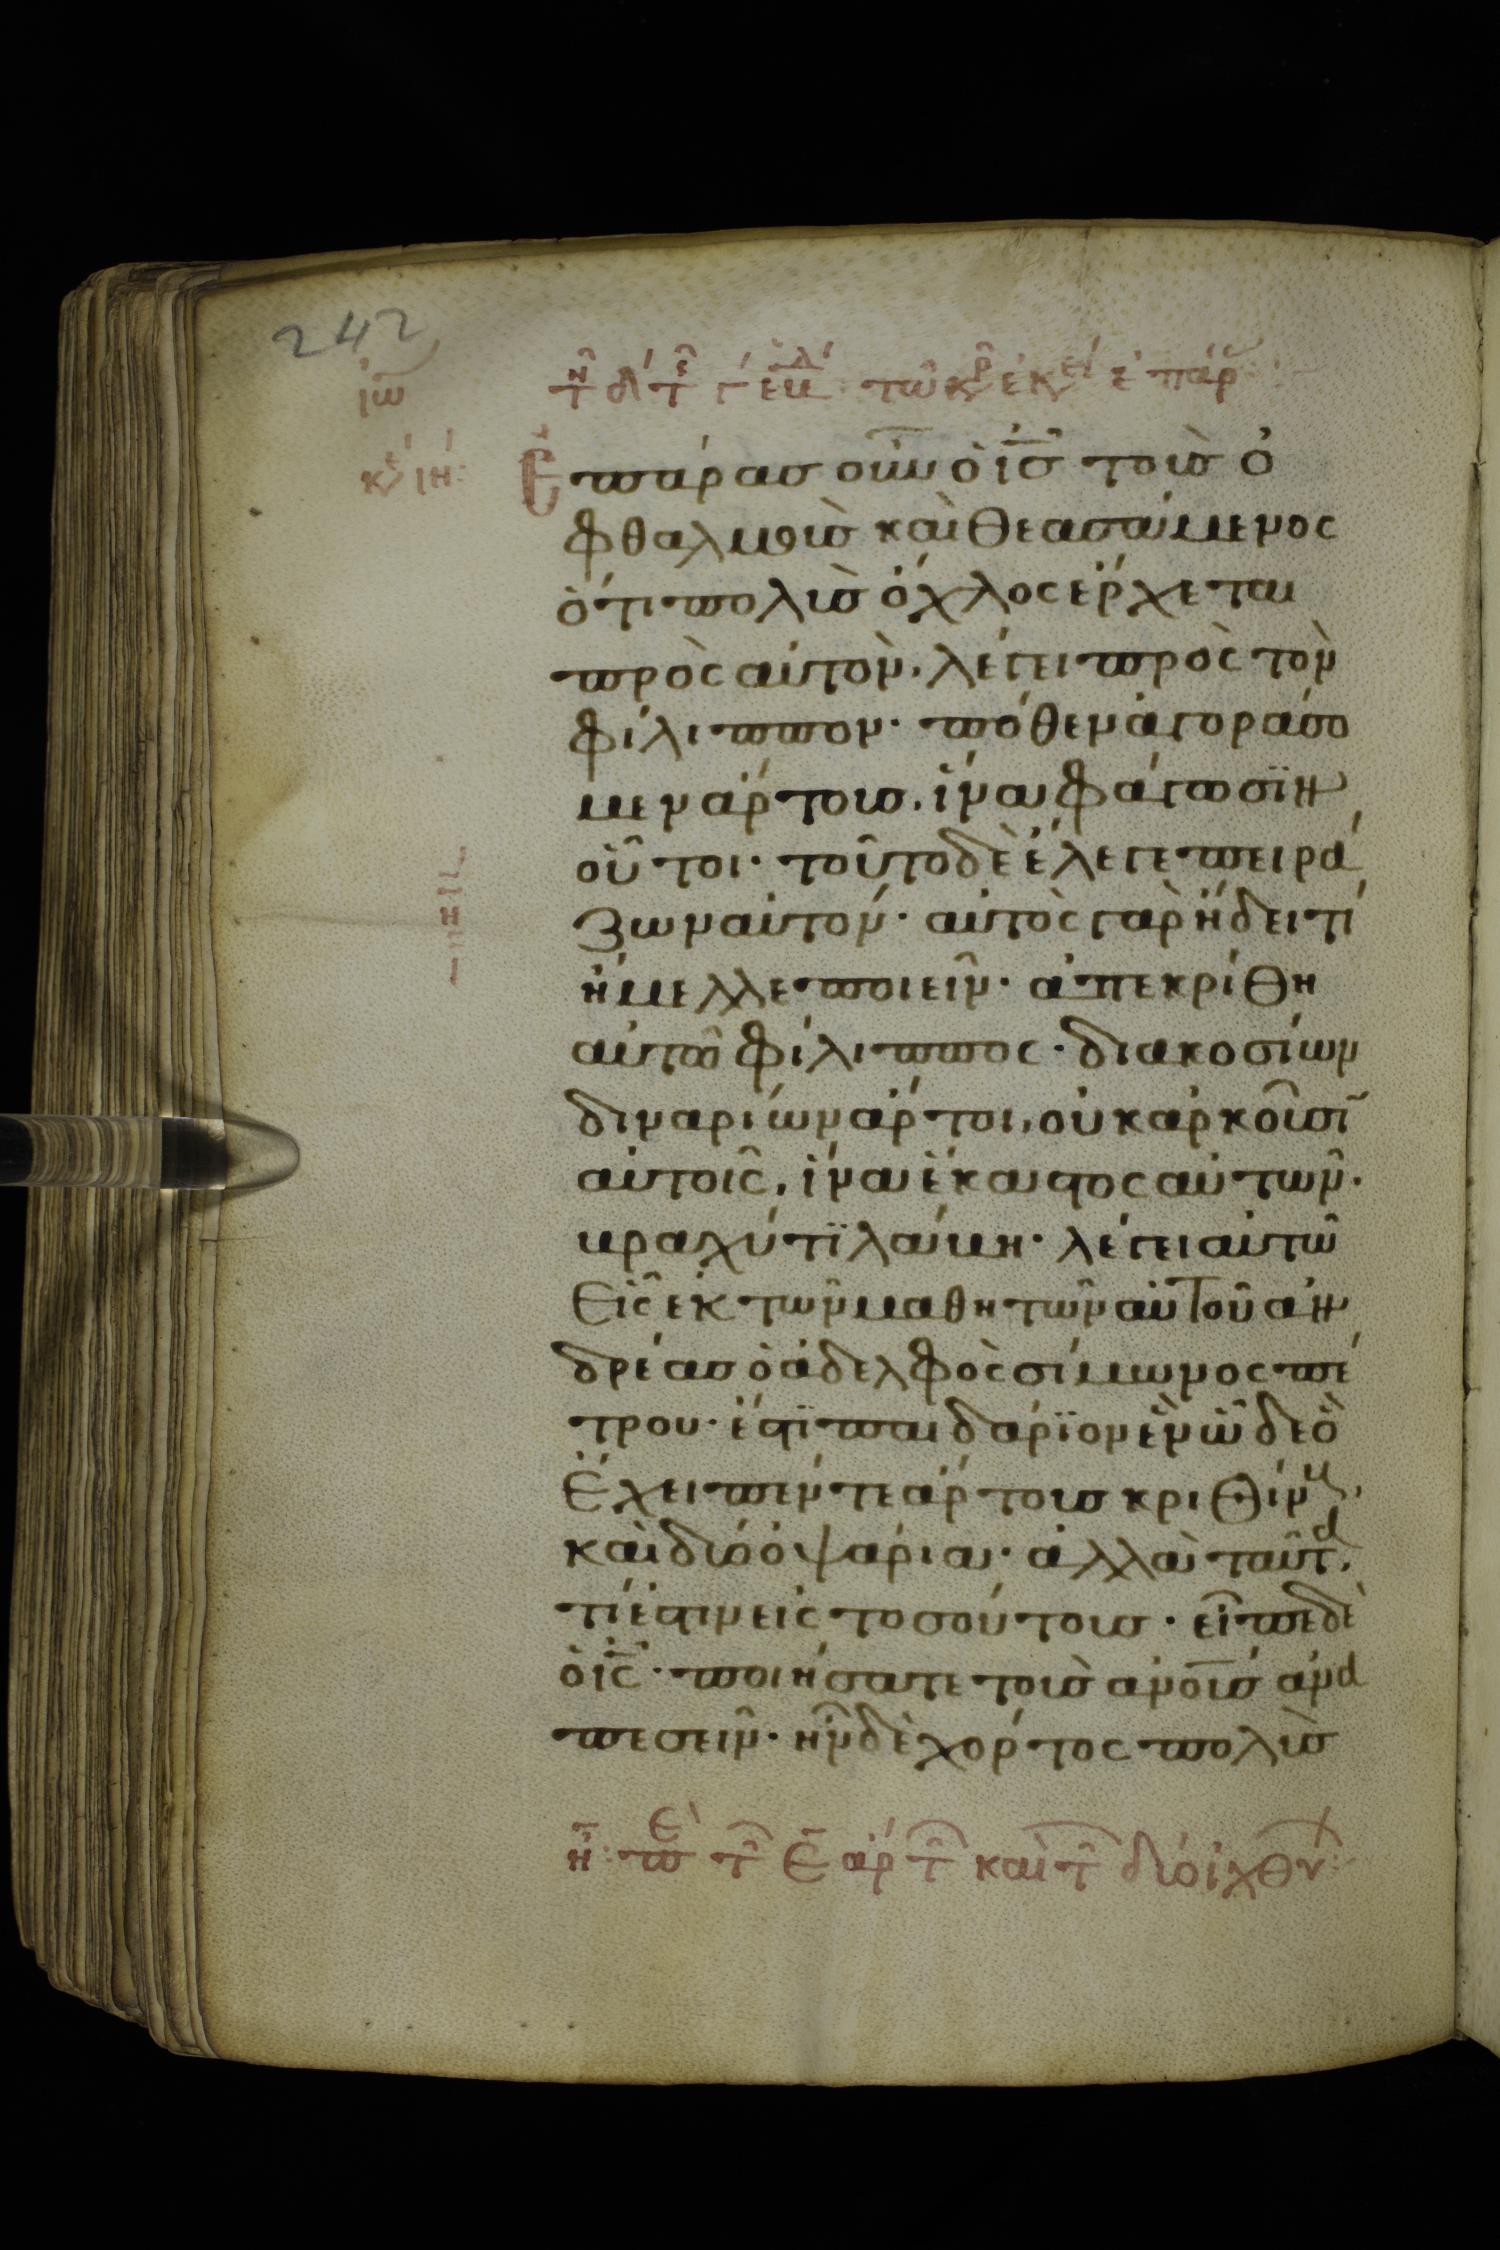 242
ἰω
τῆ δ τῆς γ ἑβδ τῶ κρ ἐκεί ἐπάρ
κε ιη:
Ἐπάρασ οὖν ὁ ις τοὺσ ὀ
φθαλμοὺσ καὶ θεασάμενος
ὅτι πολὺσ ὄχλος ἔρχεται
πρὸς αὐτὸν, λέγει πρὸς τὸν
φίλιππον· πόθεν ἀγοράσο
μεν ἄρτουσ, ἵνα φάγωσϊν
οὗτοι· τοῦτο δὲ ἔλεγε πειρά
ζων αὐτόν· αὐτὸς γὰρ ἤδει τί
ἤμελλε ποιεῖν· ἀπεκρίθη
αὐτῶ φίλιππος· διακοσίων
διναρίων ἄρτοι, οὐκ ἀρκοῦσῖ
αὐτοῖς, ἵνα ἕκαστος αὐτῶν·
βραχύ τϊ λάβη· λέγει αὐτῶ
Εἷς ἐκ τῶν μαθητῶν αὐτοῦ ἀν
δρέασ ὁ ἀδελφὸς σίμωνος πέ
τρου· ἔστϊ παιδάρϊον ἓν ὧδε ὃ
Ἔχει πέντε ἄρτουσ κριθίν,
καὶ δύο ὀψάρια· ἀλλὰ ταῦτα,
τί ἐστιν εἰς τοσούτουσ· εἶπε δὲ
ὁ ις· ποιήσατε τοὺσ ανουσ ἀνα
πεσεῖν· ἦν δὲ χόρτος πολὺσ
η: πε τ ε ἀρτ καὶ τ δύο ἰχθυ: